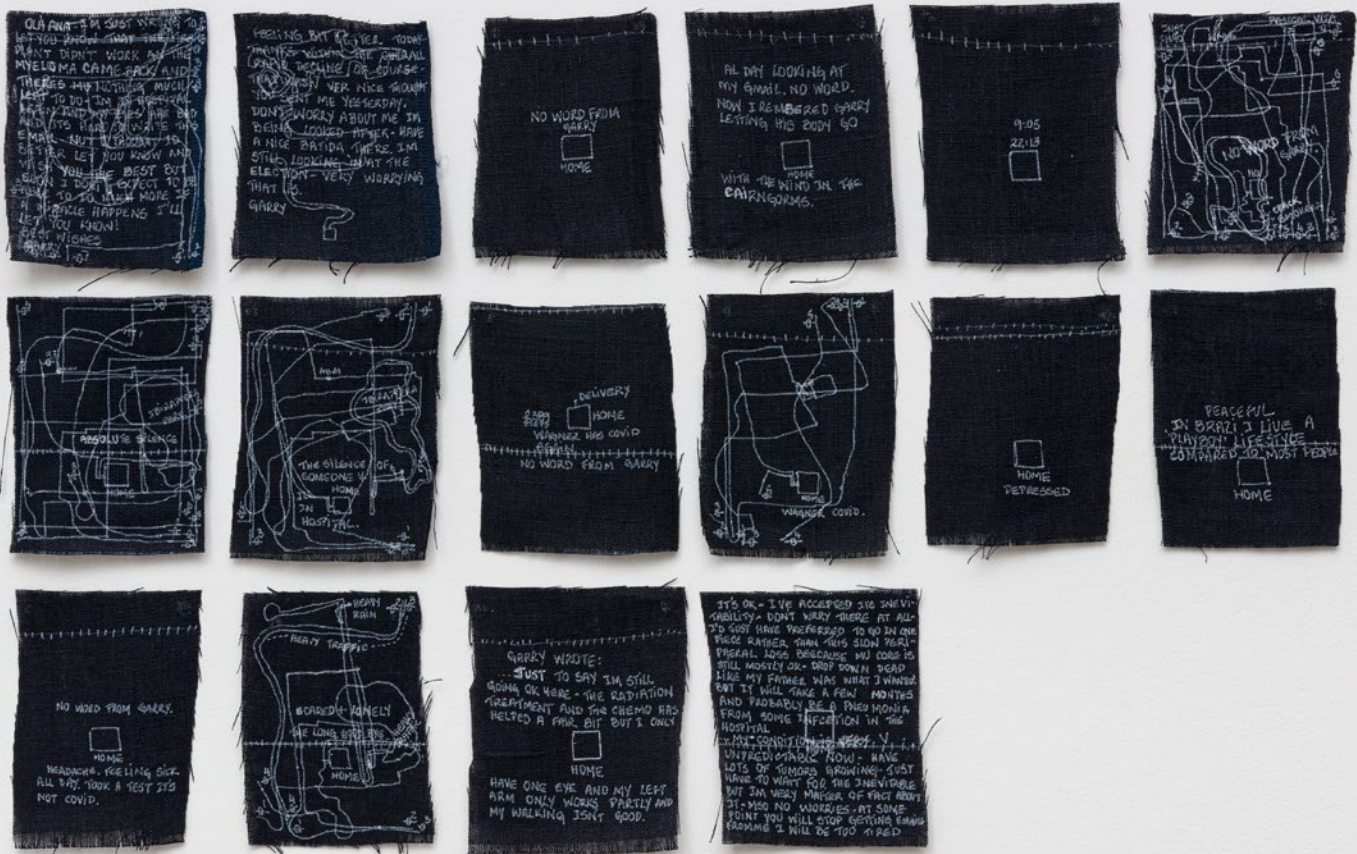 OLA ANA - I'M JUST WRITING TO
LET YOU KNOW THAT THE
PLANT DIDN'T WORK AN THE
MYELOMA CAME BACK AND
THERES NOTHING MUCH
TO DO I'M IN HOSPITAL
AND MY EYES ARE BAD
AND ITS HARD TO WRITE THIS
EMAIL BUT THOUGHT I'D
BETTER LET YOU KNOW AND
WISH YOU THE BEST BUT
SOON I DON'T EXPECT TO BE
TO DO MUCH MORE IF
A MIRACLE HAPPENS I'LL
LET YOU KNOW!
BEST WISHES
GARRY
FEELING BAT BETTER TODAY
THANKS WITHIN THE OVERALL
RAPID DECLINE OF COURSE -
VER NICE THOUGH
YOU SENT ME YESTERDAY.
DON'T WORRY ABOUT ME IM
BEING LOOKED AFTER - HAVE
A NICE BATIDA THERE. I'M
STILL LOOKING IN AT THE
ELECTION - VERY WORRYING
THAT IS.
GARRY
NO WORD FROM
GARRY
HOME
AL DAY LOOKING AT
MY GMAIL. NO WORD.
NOW I REMBERED GARRY
LETTING HIS BODY GO
HOME
WITH THE WIND IN THE
CAIRNGORMS.
9:05
22:13
NO WORD FROM
GARRY
ABSOLUTE SILENCE
HOME
THE SILENCE OF
SOMEONE
HOME
IN
HOSPITAL.
DELIVERY
HOME
WAGNER HAS COVID
AGAIN
NO WORD FROM GARRY
HOME
WAGNER COVID.
HOME
DEPRESSED
PEACEFUL.
IN BRAZI I LIVE A
PLAYBOY LIFESTYLE
COMPARED TO MOST PEOPLE
HOME
NO WORD FROM GARRY.
HOME
HEADACHE. FEELING SICK
ALL DAY. TOOK A TEST IT'S
NOT COVID.
HEAVY
RAIN
HEAVY TRAFFIC
SCARED + LONELY
THE LONG GOODBYE
HOME
GARRY WROTE:
JUST TO SAY IM STILL
GOING OK HERE - THE RADIATION
TREATMENT AND THE CHEMO HAS
HELPED A FAIR BIT BUT I ONLY
HOME
HAVE ONE EYE AND MY LEFT
ARM ONLY WORKS PARTLY AND
MY WALKING ISNT GOOD.
IT'S OK - I'VE ACCEPTED ITS INEVI-
TABILITY - DONT WRRY THERE AT ALL -
I'D JUST HAVE PREFERRED TO GO IN ONE
PIECE RATHER THAN THIS SLOW PERI-
PHERAL LOSS BEECAUSE MU CORE IS
STILL MOSTLY OK - DROP DOWN DEAD
LIKE MY FATHER WAS WHAT I WANTED
BUT IT WILL TAKE A FEW MONTHS
AND PROBABLY BE A PNEUMONIA
FROM SOME INFECTION IN THE
HOSPITAL
- MY CONDITION IS VERY V
UNPREDICTABLE NOW - HAVE
LOTS OF TUMORS GROWING - JUST
HAVE TO WAIT FOR THE INEVITABLE
BUT IM VERY MATTER OF FACT ABOUT
IT - MSO NO WORRIES - AT SOME
POINT YOU WILL STOP GETTING EMAILS
FROMME I WILL BE TOO TIRED